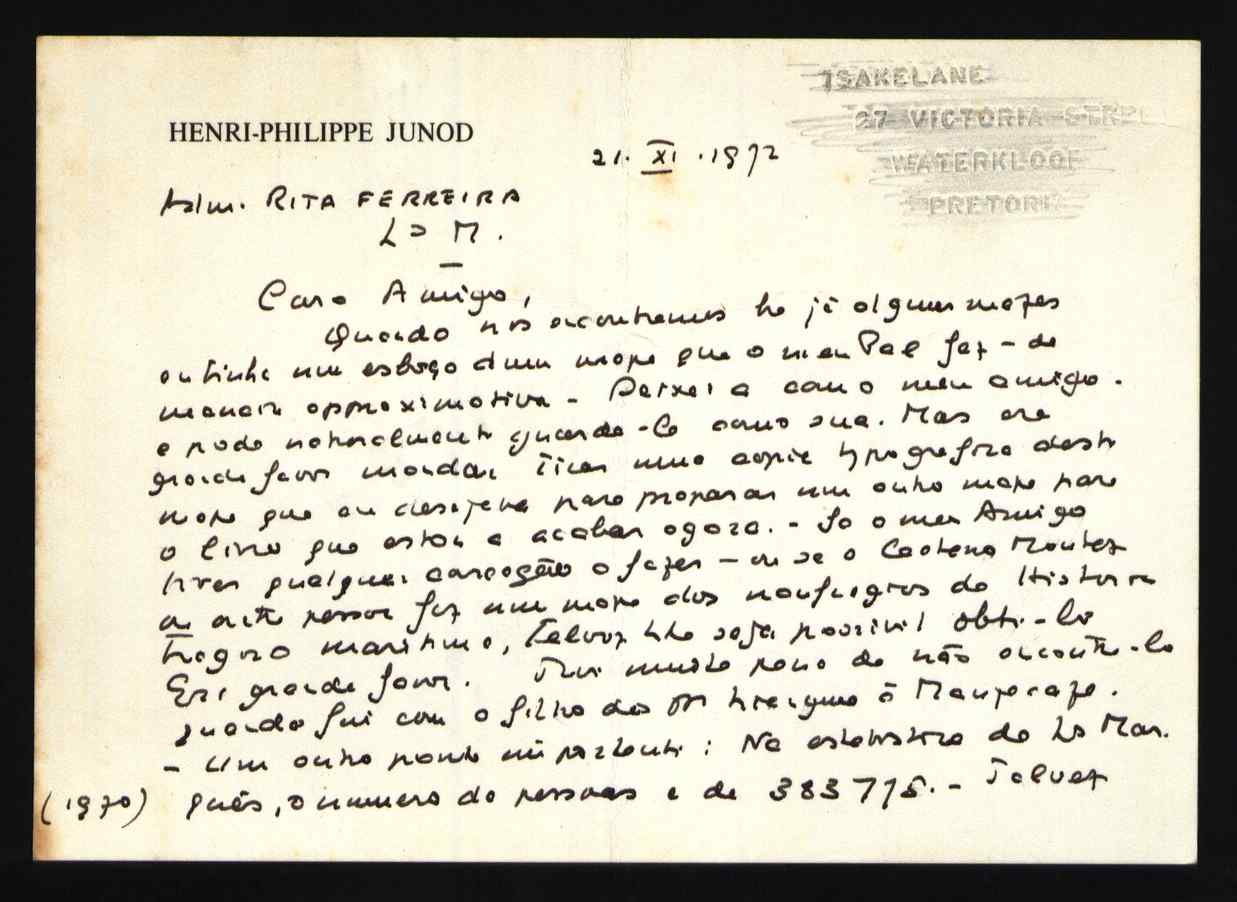 TSAKELANE
27 VICTORIA STRE
WATERKLOOF
PRETORI
HENRI-PHILIPPE JUNOD
21. XI. 1972
Adm. RITA FERREIRA
L. M.
Caro Amigo,
Quando nos encontramos ha já alguns mezes
eu tinha um esboço dum mapa que o meu Pae fez - de
maneira approximativa - Deixei a com o meu amigo.
e pode naturalmente guarda-lo como sua. Mas era
grande favor mandar tirar uma copia deste
mapa que eu desejava para preparar um outro mapa para
o livro que estou a acabar agora. - Se o meu Amigo
tiver qualquer correcção a fazer - ou se o Caetano Montez
ou outra pessoa fez um mapa dos naufragios da Historia
Tragico maritima, Talvez lhe seja possivel obte-lo
Era grande favor. Tive muita pena de não encontra-lo
quando fui com o filho do à Manjacaze.
- Um outro ponto importante: Na estatistica de Ls Mar.
(1970) quês, o numero de pessoas e de 383 775. - Talvez